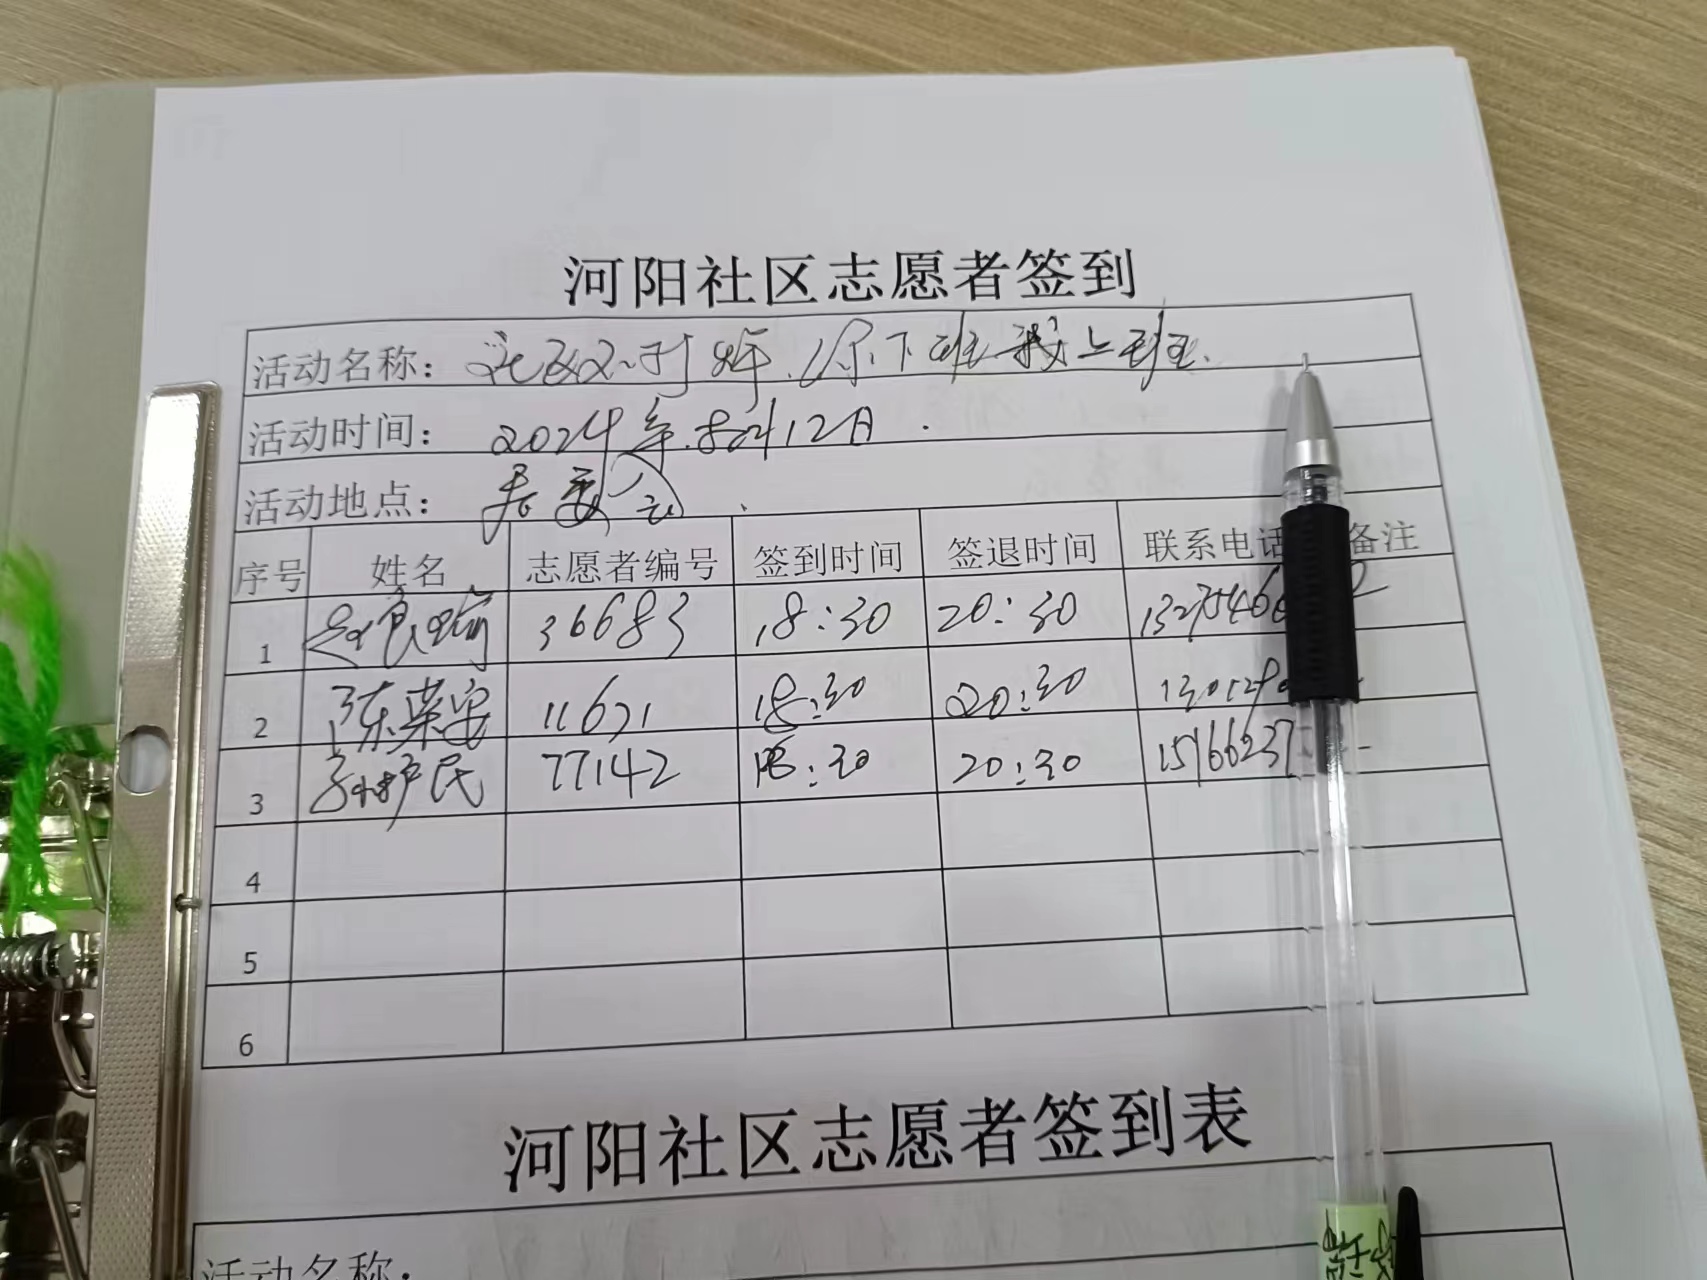 河阳社区志愿者签到
活动名称: 你下班我上班.
活动时间: 2024年 12日.
活动地点: 居委会.
序号 姓名 志愿者编号 签到时间 签退时间 联系电话 备注
1 36683 18:30 20:30
2 陈荣安 11671 18:30 20:30
3 77142 18:30 20:30 15166237
4
5
6
河阳社区志愿者签到表
活动名称: